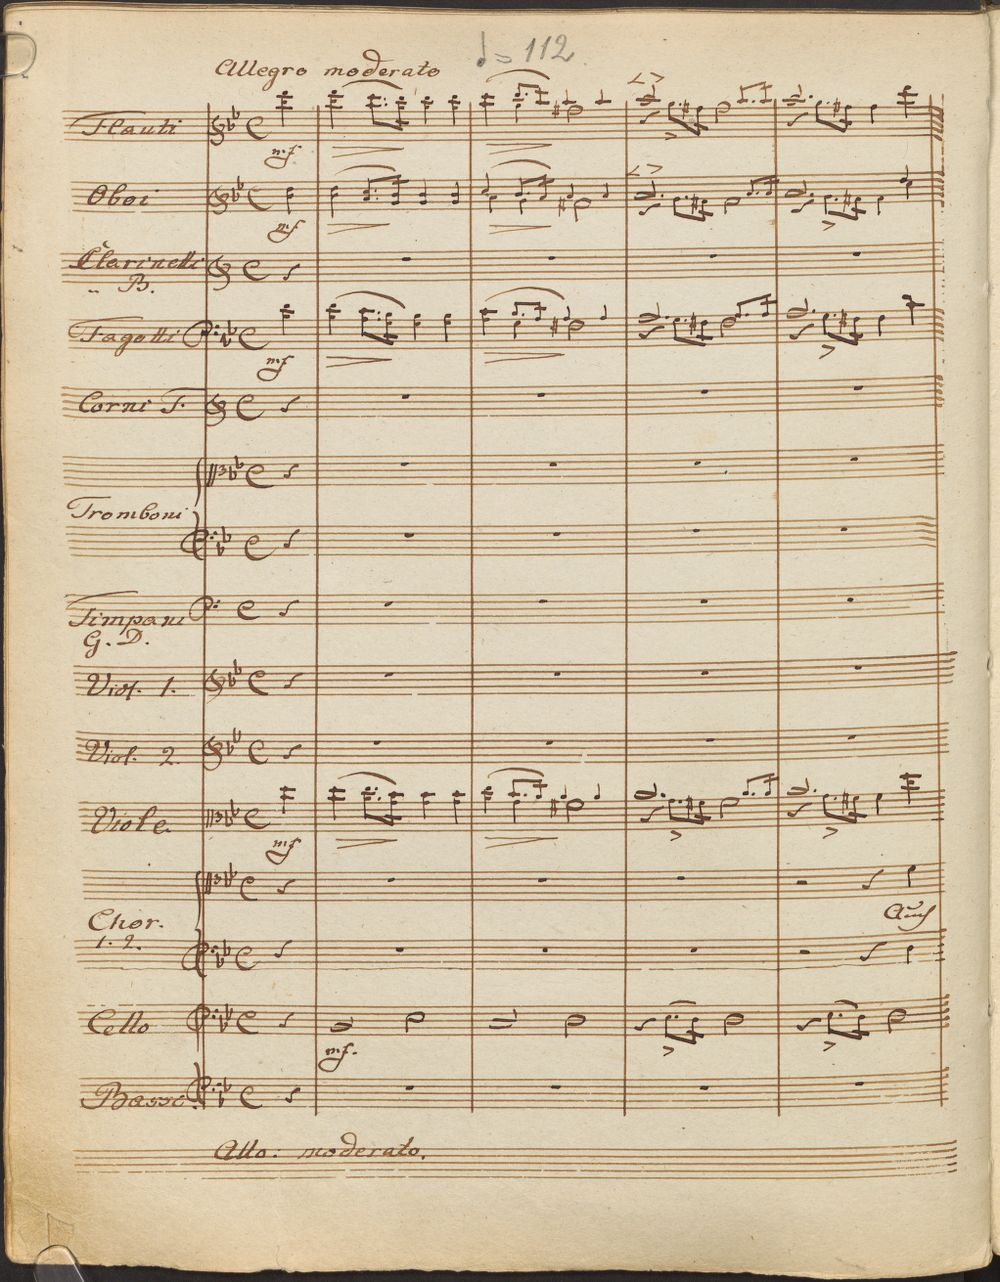 ♩ = 112.
Allegro moderato
Flauti
mf
Oboi
mf
Clarinetti
B.
Fagotti
mf
Corni F.
Tromboni
Timpani
G. D.
Viol. 1.
Viol. 2.
Viole.
mf
Auch
Chor.
1. 2.
Cello
mf.
Basso.
Allo: moderato.